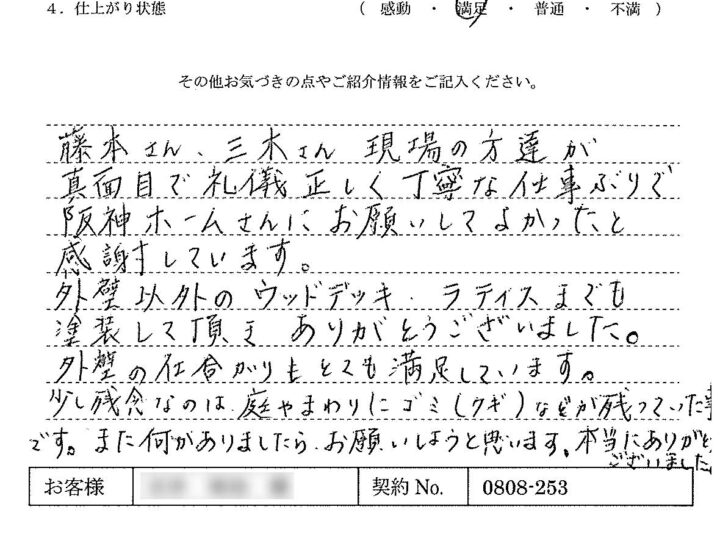 4．仕上がり状態 （ 感動 ・ 満足 ・ 普通 ・ 不満 ）
その他お気づきの点やご紹介情報をご記入ください。
藤本さん、三木さん 現場の方達が
真面目で礼儀正しく丁寧な仕事ぶりで
阪神ホームさんにお願いしてよかったと
感謝しています。
外壁以外のウッドデッキ、ラティスまでも
塗装して頂き ありがとうございました。
外壁の仕合がりもとても満足しています。
少し残念なのは、庭やまわりにゴミ(クギ)などが残っていた事
です。また何がありましたら、お願いしようと思います。本当にありがと
ございました
お客様 契約 No. 0808-253